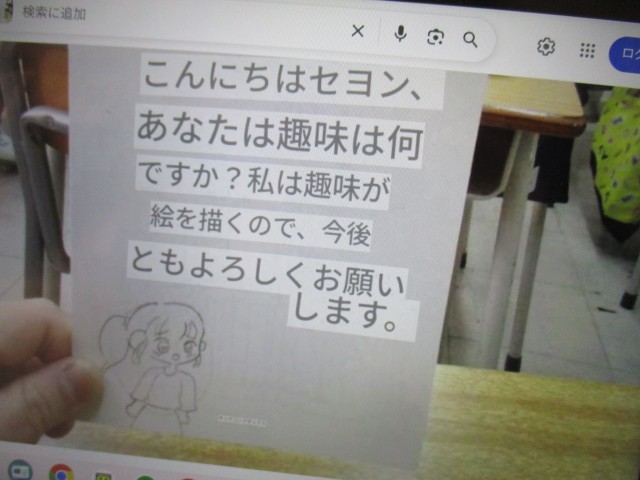 検索に追加
こんにちはセヨン、
あなたは趣味は何
ですか？私は趣味が
絵を描くので、今後
ともよろしくお願い
します。